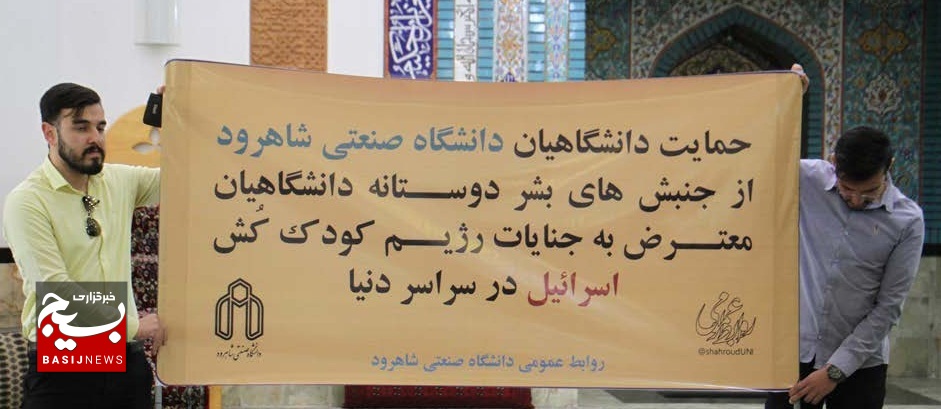 حمایت دانشگاهیان دانشگاه صنعتی شاهرود
از جنبش های بشر دوستانه دانشگاهیان
معترض به جنایات رژیم کودک کُش
اسرائیل در سراسر دنیا
دانشگاه صنعتی شاهرود
روابط عمومی
@shahroudUNI
روابط عمومی دانشگاه صنعتی شاهرود
خبرگزاری
بسیج
BASIJNEWS